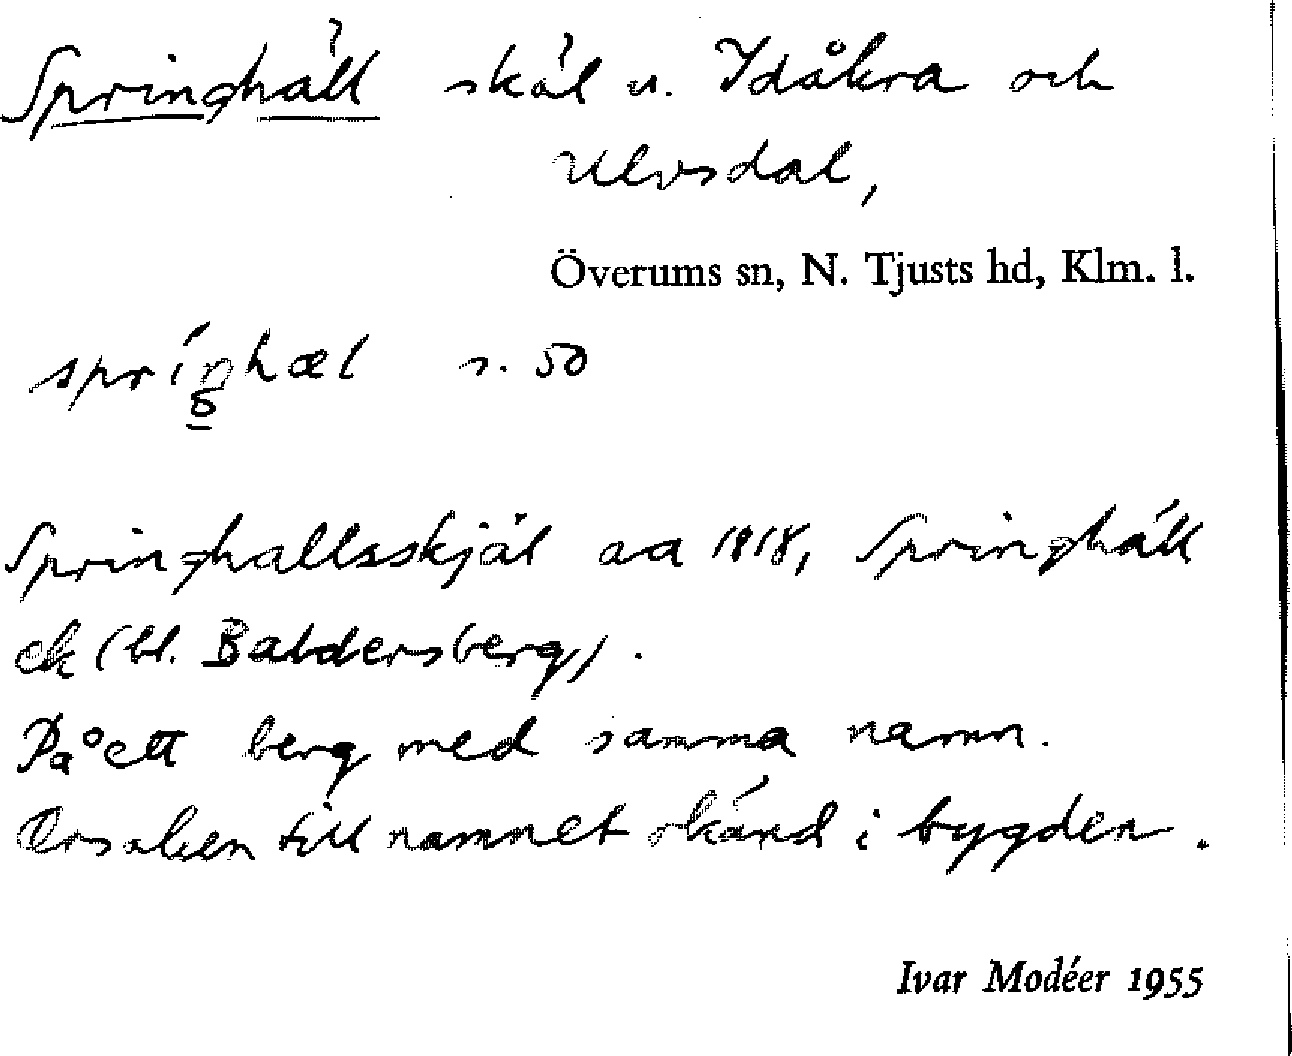 Springhäll skäl u. Idåkra och
Ulvsdal,
Överums sn, N. Tjusts hd, Klm. l.
spríŋhæl s. 50
Springhallsskjäl aa 1818, Springhäll
ek (bl. Baldersberg).
På ett berg med samma namn.
Orsaken till namnet okänd i bygden.
Ivar Modéer 1955